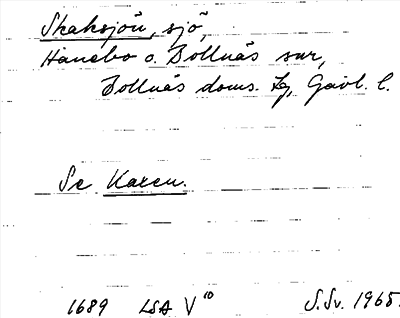 Skaksjön, sjö,
Hanebo o. Bollnäs snr,
Bollnäs doms. Lg, Gävl. l.
Se Karen.
1689 LSA V¹⁰ S.Sv. 1965.